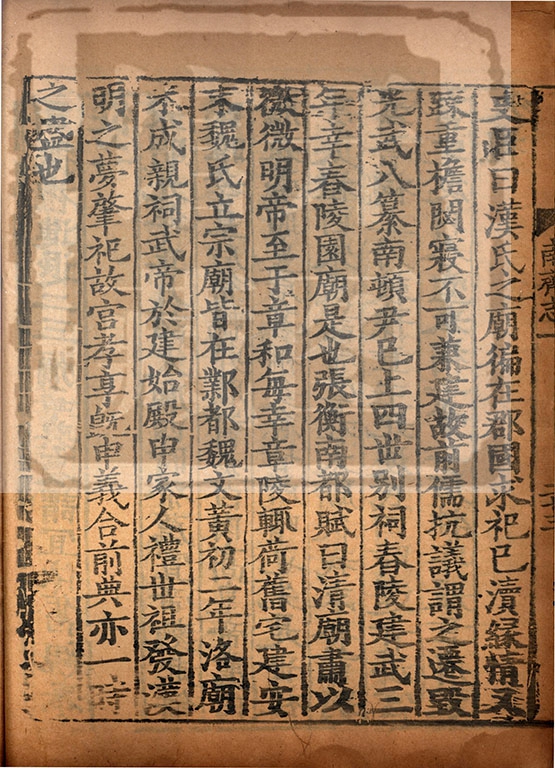 南齊志一
史臣曰漢氏之廟徧在郡國求祀巳瀆緣情又
踈重檐閟寢不可兼建故前儒抗議謂之遷毀
光武入纂南頓尹巳上四世別祠春陵建武三
年幸春陵園廟是也張衡南都賦曰清廟肅以
微微明帝至于章和每幸章陵輒荷舊宅建安
末魏氏立宗廟皆在鄴都魏文黃初二年洛廟
未成親祠武帝於建始殿申家人禮世祖發漢
明之夢肇祀故宮孝享旣申義合前典亦一時
之盛也